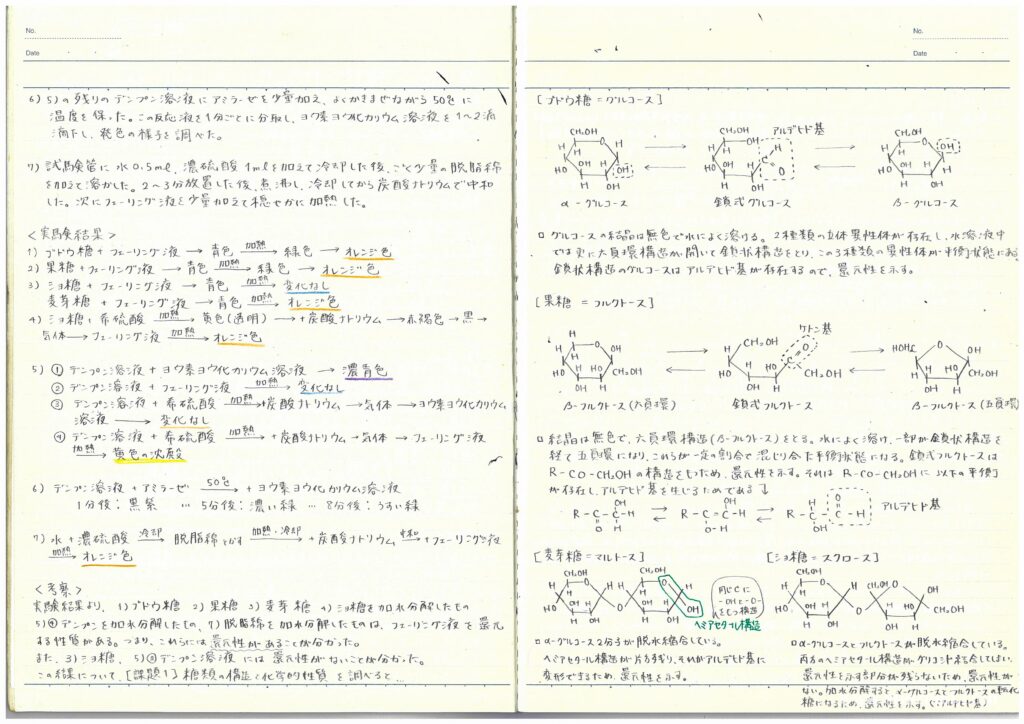 No.
Date
6) 5)の残りのデンプン溶液にアミラーゼを少量加え、よくかきまぜながら50℃に
温度を保った。この反応液を1分ごとに分取し、ヨウ素ヨウ化カリウム溶液を1〜2滴
滴下し、発色の様子を調べた。
7) 試験管に水0.5ml、濃硫酸1mlを加えて冷却した後、ごく少量の脱脂綿
を加えて溶かした。2〜3分放置した後、煮沸し、冷却してから炭酸ナトリウムで中和
した。次にフェーリング液を少量加えて穏やかに加熱した。
<実験結果>
1) ブドウ糖 + フェーリング液 → 青色 加熱→ 緑色 → オレンジ色
2) 果糖 + フェーリング液 → 青色 加熱→ 緑色 → オレンジ色
3) ショ糖 + フェーリング液 → 青色 加熱→ 変化なし
麦芽糖 + フェーリング液 → 青色 加熱→ オレンジ色
4) ショ糖 + 希硫酸 加熱→ 黄色(透明) → +炭酸ナトリウム → 赤褐色 → 黒 →
気体 → フェーリング液 加熱→ オレンジ色
5) ① デンプン溶液 + ヨウ素ヨウ化カリウム溶液 → 濃青色
② デンプン溶液 + フェーリング液 加熱→ 変化なし
③ デンプン溶液 + 希硫酸 加熱→ +炭酸ナトリウム → 気体 → ヨウ素ヨウ化カリウム
溶液 → 変化なし
④ デンプン溶液 + 希硫酸 加熱→ +炭酸ナトリウム → 気体 → フェーリング液
加熱→ 黄色の沈殿
6) デンプン溶液 + アミラーゼ 50℃→ +ヨウ素ヨウ化カリウム溶液
1分後:黒紫 … 5分後:濃い緑 … 8分後:うすい緑
7) 水 + 濃硫酸 冷却→ 脱脂綿とかす 加熱・冷却→ +炭酸ナトリウム 中和→ +フェーリング液
加熱→ オレンジ色
<考察>
実験結果より、1)ブドウ糖 2)果糖 3)麦芽糖 4)ショ糖を加水分解したもの
5)④デンプンを加水分解したもの、7)脱脂綿を加水分解したものは、フェーリング液を還元
する性質がある。つまり、これらには還元性があることが分かった。
また、3)ショ糖、5)②デンプン溶液には還元性がないことが分かった。
この結果について、[課題1]糖類の構造と化学的性質を調べると…
No.
Date
[ブドウ糖=グルコース]
CH2OH
H
O
OH
HO
CH2OH
アルデヒド基
OH
H
C
O
HO
CH2OH
O
OH
H
HO
α-グルコース
鎖式グルコース
β-グルコース
□ グルコースの結晶は無色で水によく溶ける。2種類の立体異性体が存在し、水溶液中
では更に六員環構造が開いて鎖状構造をとり、この3種類の異性体が平衡状態にある。
鎖状構造のグルコースはアルデヒド基が存在するので、還元性を示す。
[果糖=フルクトース]
ケトン基
H
O
OH
HO
CH2OH
CH2OH
C
O
CH2OH
HOH2C
O
OH
CH2OH
β-フルクトース(六員環)
鎖式フルクトース
β-フルクトース(五員環)
□ 結晶は無色で、六員環構造(β-フルクトース)をとる。水によく溶け、一部が鎖状構造を
経て五員環になり、これらが一定の割合で混じり合った平衡状態になる。鎖式フルクトースは
R-CO-CH2OHの構造をもつため、還元性を示す。それはR-CO-CH2OHに以下の平衡
が存在し、アルデヒド基を生じるためである↓
R-C-C-H
R-C=C-H
R-C-C-H
アルデヒド基
[麦芽糖=マルトース]
[ショ糖=スクロース]
CH2OH
CH2OH
同じCに
-OHと-O-
をもつ構造
ヘミアセタール構造
□ α-グルコース2分子が脱水縮合している。
ヘミアセタール構造が片方残り、それがアルデヒド基に
変形できるため、還元性を示す。
□ α-グルコースとフルクトースが脱水縮合している。
両方のヘミアセタール構造がグリコシド結合してしまい、
還元性を示す部分が残らないため、還元性が
ない。加水分解すると、α-グルコースとフルクトースの転化
糖になるため、還元性を示す。(∵アルデヒド基)